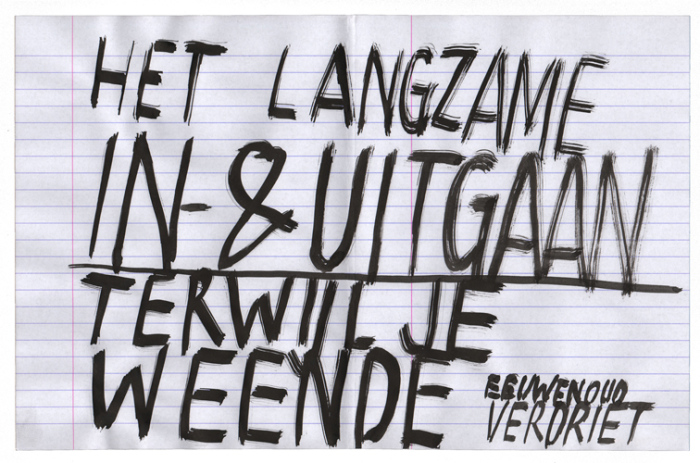 HET LANGZAME
IN- & UITGAAN
TERWIJL JE
WEENDE
EEUWENOUD
VERDRIET